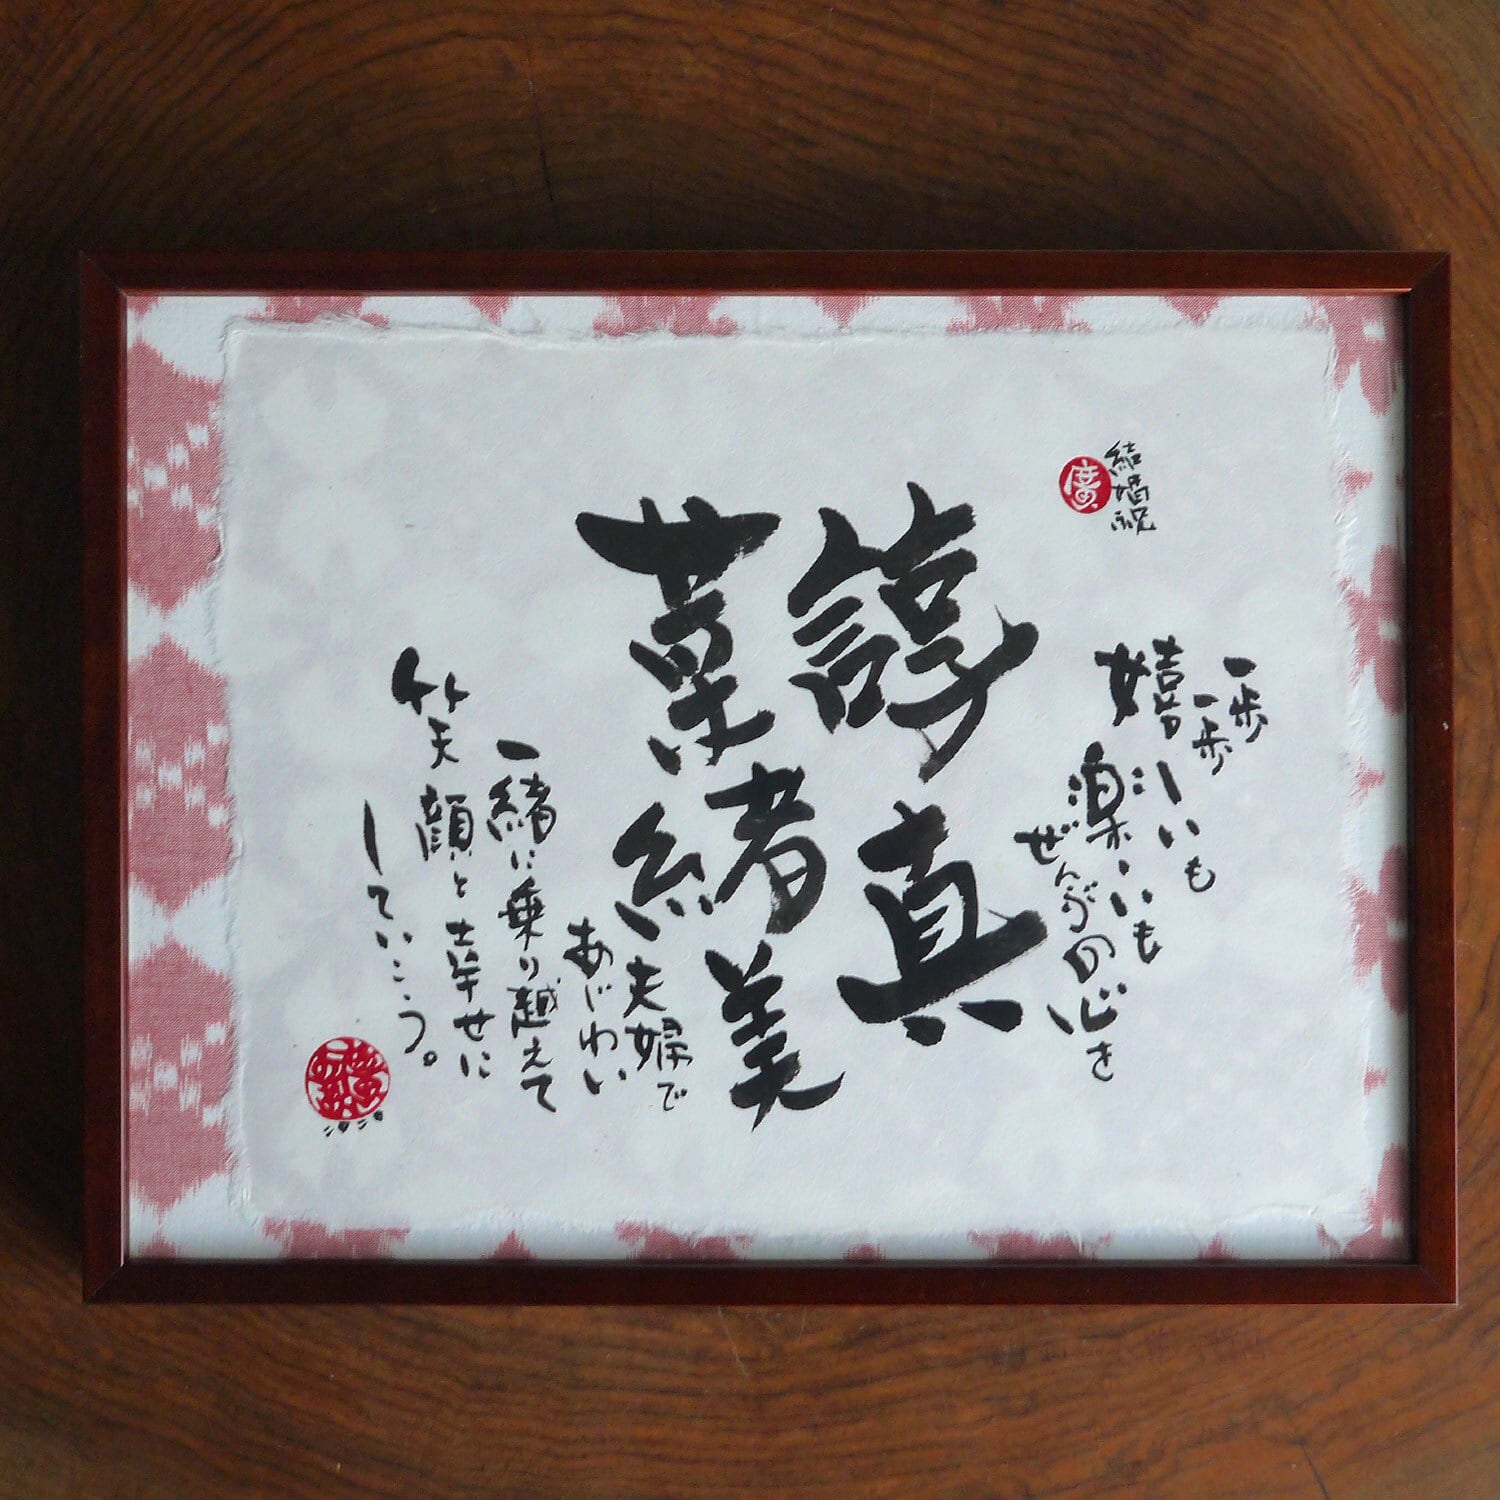 結婚祝
廣
一歩
一歩
嬉しいも
楽しいも
ぜんぶの心を
諄真
菓緒美
夫婦で
あじわい
一緒に乗り越えて
笑顔と幸せに
していこう。